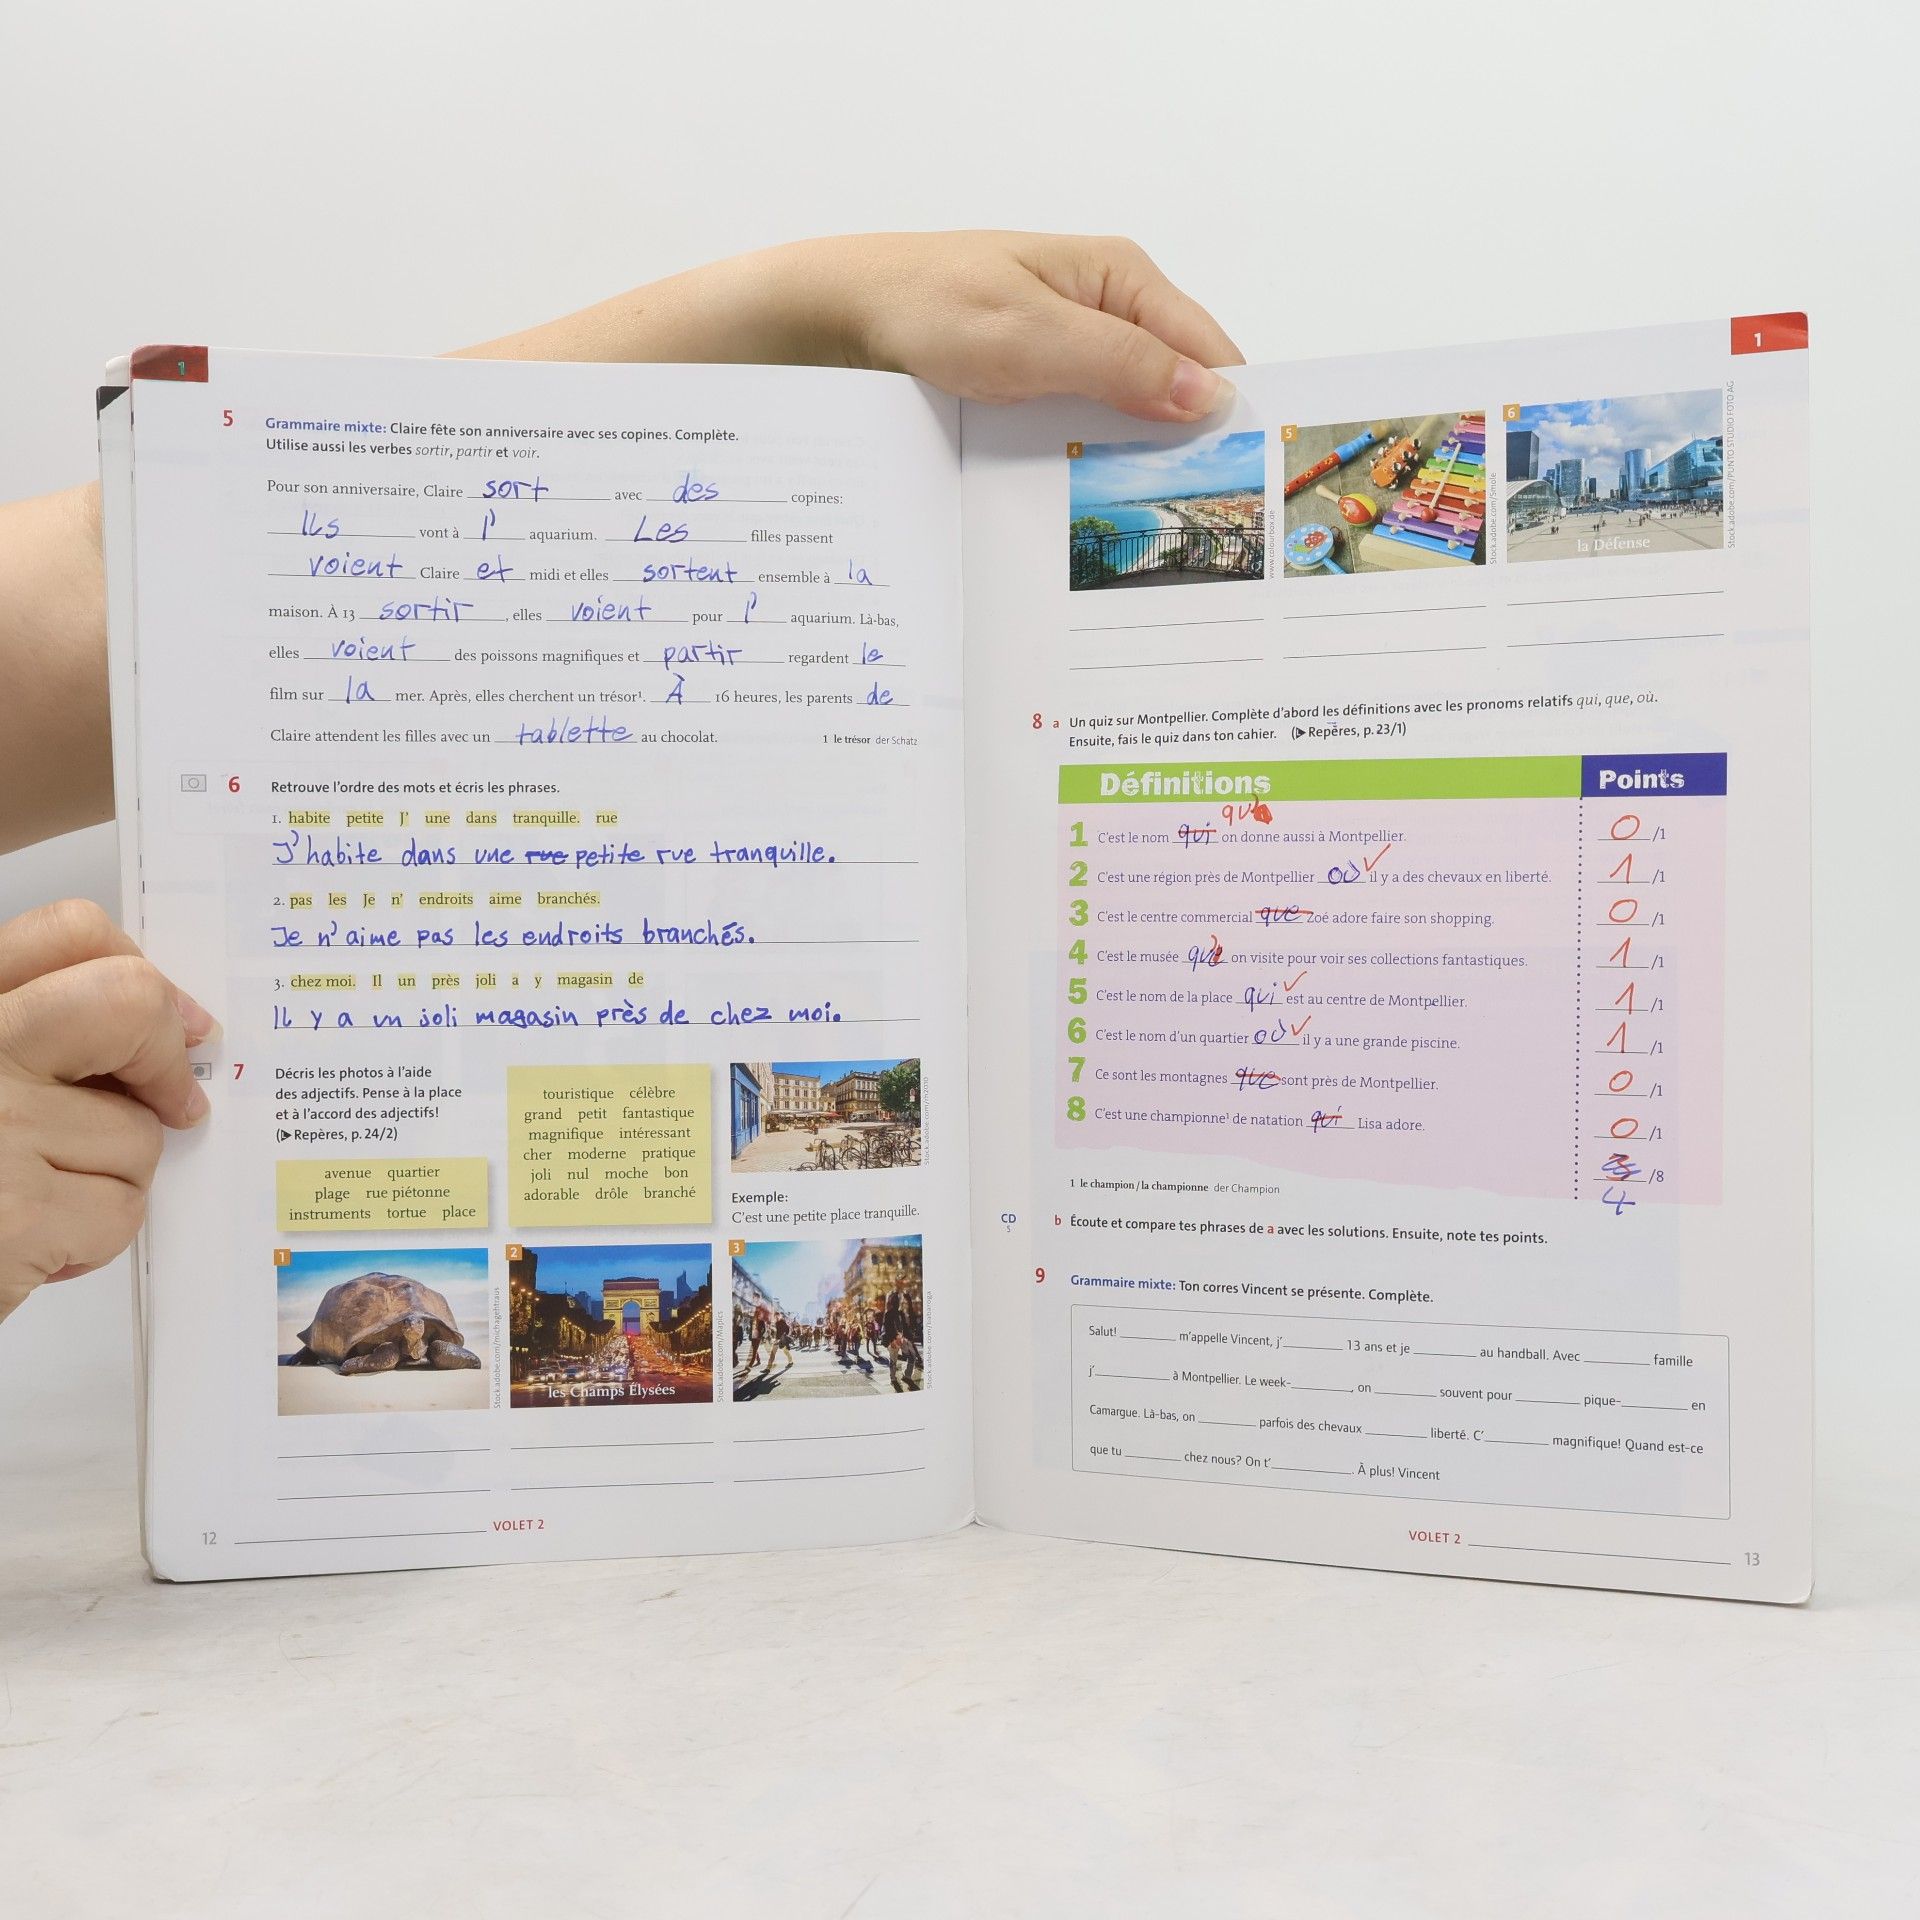 1
5 Grammaire mixte: Claire fête son anniversaire avec ses copines. Complète.
Utilise aussi les verbes sortir, partir et voir.
Pour son anniversaire, Claire sort avec des copines:
Ils vont à l' aquarium. Les filles passent
voient Claire et midi et elles sortent ensemble à la
maison. À 13 sortir, elles voient pour l' aquarium. Là-bas,
elles voient des poissons magnifiques et partir regardent le
film sur la mer. Après, elles cherchent un trésor¹. À 16 heures, les parents de
Claire attendent les filles avec un tablette au chocolat.
1 le trésor der Schatz
6 Retrouve l'ordre des mots et écris les phrases.
1. habite petite J' une dans tranquille. rue
J'habite dans une rue petite rue tranquille.
2. pas les Je n' endroits aime branchés.
Je n'aime pas les endroits branchés.
3. chez moi. Il un près joli a y magasin de
Il y a un joli magasin près de chez moi.
7 Décris les photos à l'aide
des adjectifs. Pense à la place
et à l'accord des adjectifs!
(▶Repères, p. 24/2)
avenue quartier
plage rue piétonne
instruments tortue place
touristique célèbre
grand petit fantastique
magnifique intéressant
cher moderne pratique
joli nul moche bon
adorable drôle branché
Exemple:
C'est une petite place tranquille.
1
2
3
les Champs Élysées
Stock.adobe.com/Mapics
12
VOLET 2
1
4
5
6
la Défense
www.colourbox.de
Stock.adobe.com/Smole
Stock.adobe.com/PUNTO STUDIO FOTO AG
8 a Un quiz sur Montpellier. Complète d'abord les définitions avec les pronoms relatifs qui, que, où.
Ensuite, fais le quiz dans ton cahier. (▶Repères, p. 23/1)
Définitions Points
1 C'est le nom qui on donne aussi à Montpellier. 0/1
2 C'est une région près de Montpellier où il y a des chevaux en liberté. 1/1
3 C'est le centre commercial que Zoé adore faire son shopping. 0/1
4 C'est le musée que on visite pour voir ses collections fantastiques. 1/1
5 C'est le nom de la place qui est au centre de Montpellier. 1/1
6 C'est le nom d'un quartier où il y a une grande piscine. 1/1
7 Ce sont les montagnes que sont près de Montpellier. 0/1
8 C'est une championne¹ de natation qui Lisa adore. 0/1
/8
4
1 le champion / la championne der Champion
CD
5
b Écoute et compare tes phrases de a avec les solutions. Ensuite, note tes points.
9 Grammaire mixte: Ton corres Vincent se présente. Complète.
Salut! ____ m'appelle Vincent, j'____ 13 ans et je ____ au handball. Avec ____ famille
j'____ à Montpellier. Le week-____, on ____ souvent pour ____ pique-____ en
Camargue. Là-bas, on ____ parfois des chevaux ____ liberté. C'____ magnifique! Quand est-ce
que tu ____ chez nous? On t'____. À plus! Vincent
VOLET 2
13